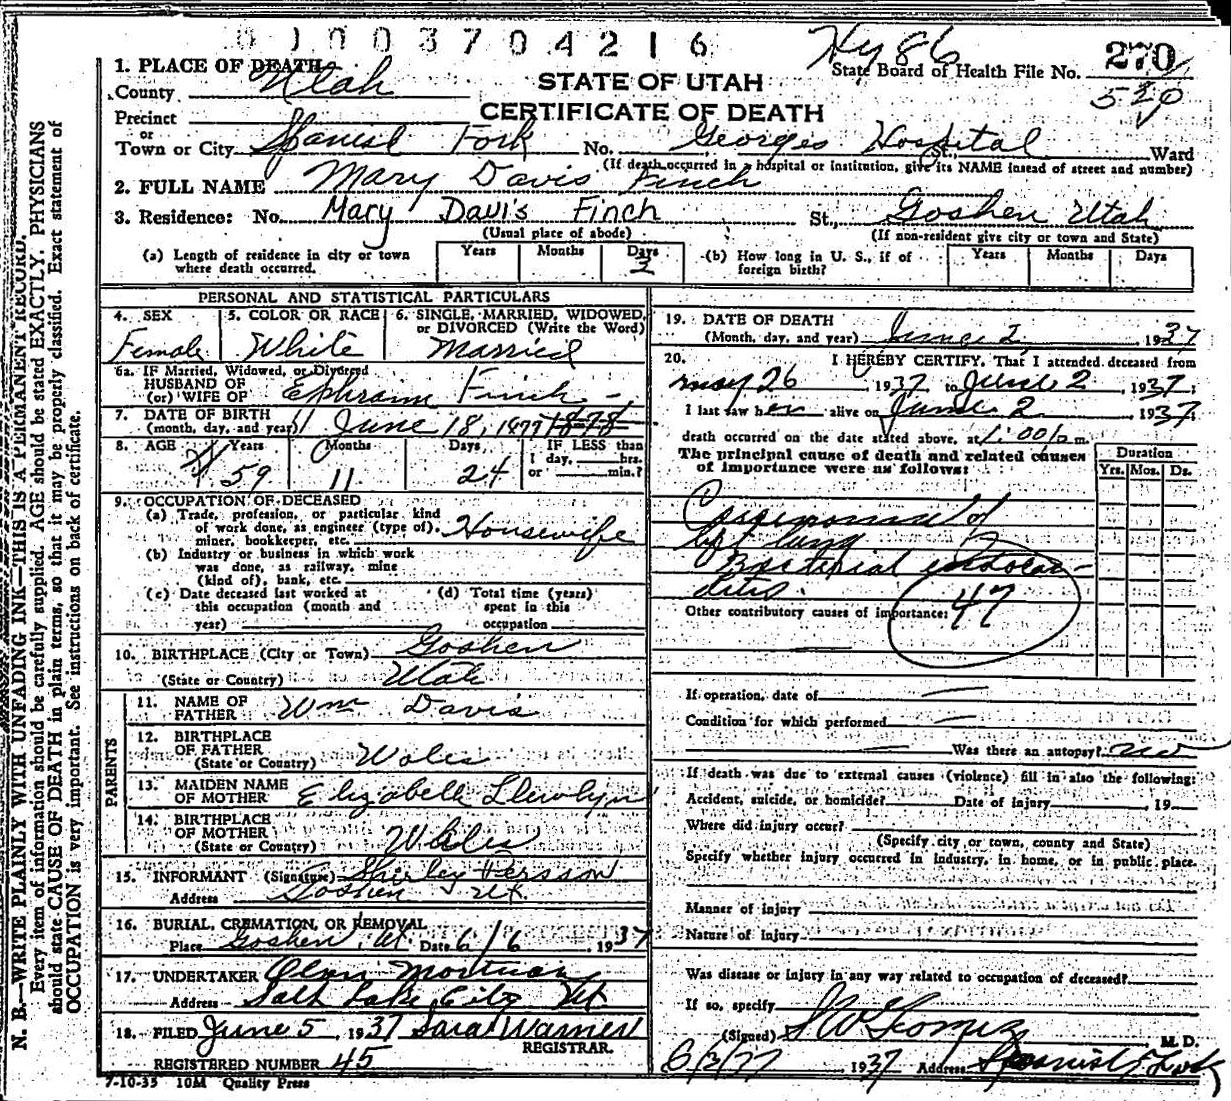 0 1 0 0 3 7 0 4 2 1 6
Hy 86
270
State Board of Health File No.
520
1. PLACE OF DEATH
County Utah
STATE OF UTAH
CERTIFICATE OF DEATH
Precinct
or
Town or City Spanish Fork No. Georges Hospital St., Ward
(If death occurred in a hospital or institution, give its NAME instead of street and number)
2. FULL NAME Mary Davis Finch
3. Residence: No. Mary Davis Finch St., Goshen Utah
(Usual place of abode) (If non-resident give city or town and State)
(a) Length of residence in city or town where death occurred. Years Months Days 3
(b) How long in U. S., if of foreign birth? Years Months Days
PERSONAL AND STATISTICAL PARTICULARS
4. SEX Female
5. COLOR OR RACE White
6. SINGLE, MARRIED, WIDOWED, or DIVORCED (Write the Word) Married
6a. IF Married, Widowed, or Divorced
HUSBAND OF
(or) WIFE OF Ephraim Finch
7. DATE OF BIRTH
(month, day, and year) June 18, 1877 1878
8. AGE Years 59 Months 11 Days 24 IF LESS than 1 day, hrs. or min.?
9. OCCUPATION OF DECEASED
(a) Trade, profession, or particular kind
of work done, as engineer (type of),
miner, bookkeeper, etc. Housewife
(b) Industry or business in which work
was done, as railway, mine
(kind of), bank, etc.
(c) Date deceased last worked at
this occupation (month and
year)
(d) Total time (years)
spent in this
occupation
10. BIRTHPLACE (City or Town) Goshen
(State or Country) Utah
PARENTS
11. NAME OF
FATHER Wm Davis
12. BIRTHPLACE
OF FATHER
(State or Country) Wales
13. MAIDEN NAME
OF MOTHER Elizabeth Llewlyn
14. BIRTHPLACE
OF MOTHER
(State or Country) Wales
15. INFORMANT (Signature) Shirley Persson
Address Goshen Ut.
16. BURIAL, CREMATION, OR REMOVAL
Place Goshen, Ut. Date 6/6 1937
17. UNDERTAKER Mortuary
Address Salt Lake City Ut
18. FILED June 5, 1937 Sara Warner
REGISTRAR.
REGISTERED NUMBER 45
7-10-35 10M Quality Press
19. DATE OF DEATH
(Month, day, and year) June 2 1937
20. I HEREBY CERTIFY, That I attended deceased from
May 26, 1937, to June 2, 1937;
I last saw her alive on June 2 1937,
death occurred on the date stated above, at 1:00 m.
The principal cause of death and related causes
of importance were as follows:
Duration
Yrs. Mos. Ds.
Carcinoma of
left lung
Bacterial endocar-
ditis.
Other contributory causes of importance: 47
If operation, date of —
Condition for which performed —
— Was there an autopsy? no
If death was due to external causes (violence) fill in also the following:
Accident, suicide, or homicide? Date of injury , 19
Where did injury occur?
(Specify city or town, county and State)
Specify whether injury occurred in industry, in home, or in public place.
Manner of injury
Nature of injury
Was disease or injury in any way related to occupation of deceased?
If so, specify
(Signed) M. D.
1937 Address Spanish Fork
N. B.—WRITE PLAINLY WITH UNFADING INK—THIS IS A PERMANENT RECORD.
Every item of information should be carefully supplied. AGE should be stated EXACTLY. PHYSICIANS
should state CAUSE OF DEATH in plain terms, so that it may be properly classified. Exact statement of
OCCUPATION is very important. See instructions on back of certificate.